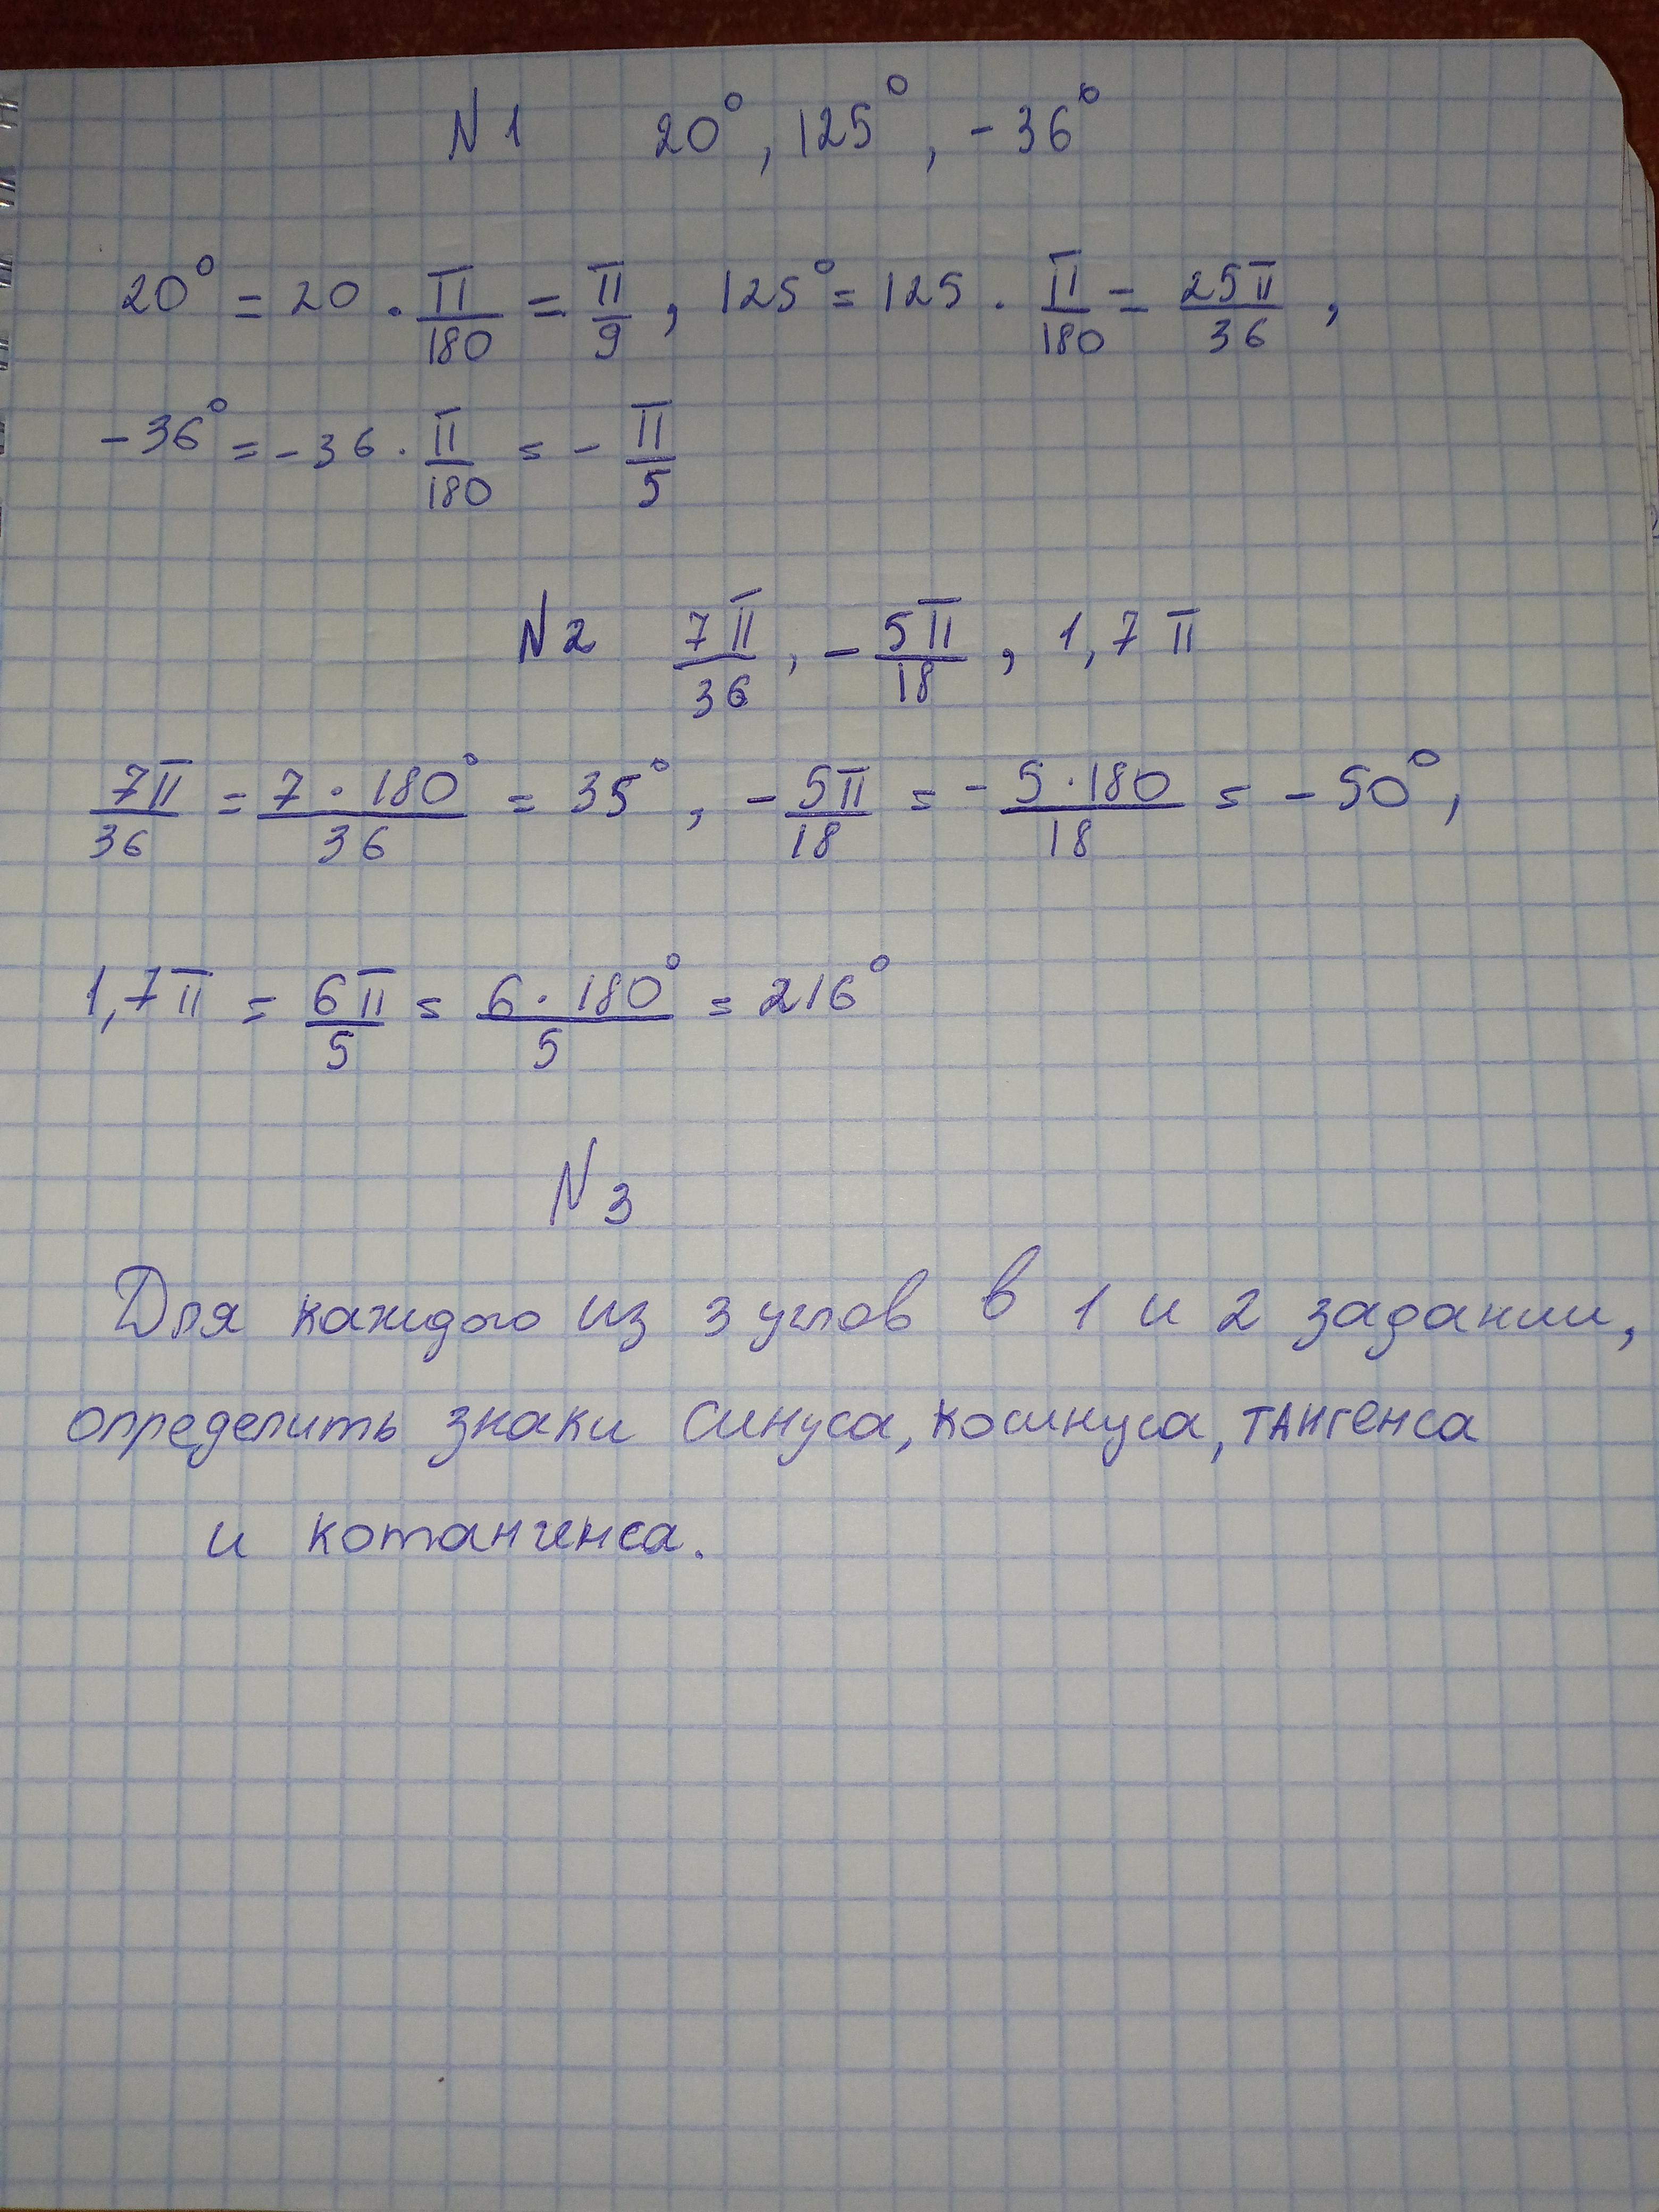 N1 20°, 125°, -36°
20° = 20 · π/180 = π/9, 125° = 125 · π/180 = 25π/36,
-36° = -36 · π/180 = - π/5
N2 7π/36, - 5π/18, 1,7π
7π/36 = 7 · 180°/36 = 35°, - 5π/18 = - 5 · 180/18 = - 50°,
1,7π = 6π/5 = 6 · 180°/5 = 216°
N3
Для каждого из 3 углов в 1 и 2 задании,
определить знаки синуса, косинуса, тангенса
и котангенса.